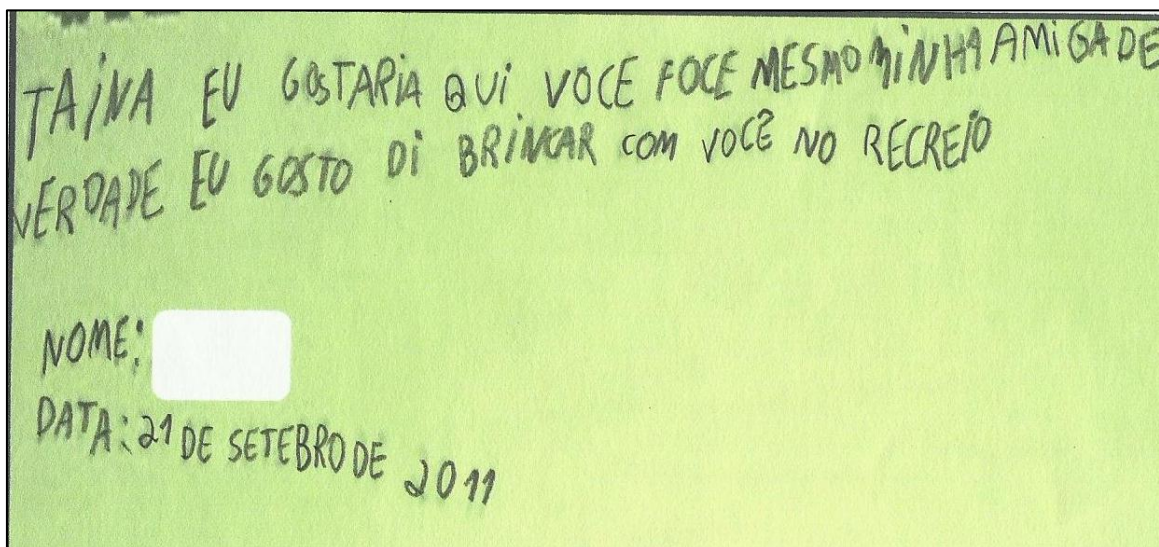 TAINA EU GOSTARIA QUI VOCE FOCE MESMO MINHA AMIGA DE
VERDADE EU GOSTO Di BRINCAR COM VOCÊ NO RECREIO
NOME:
DATA: 21 DE SETEBRO DE 2011